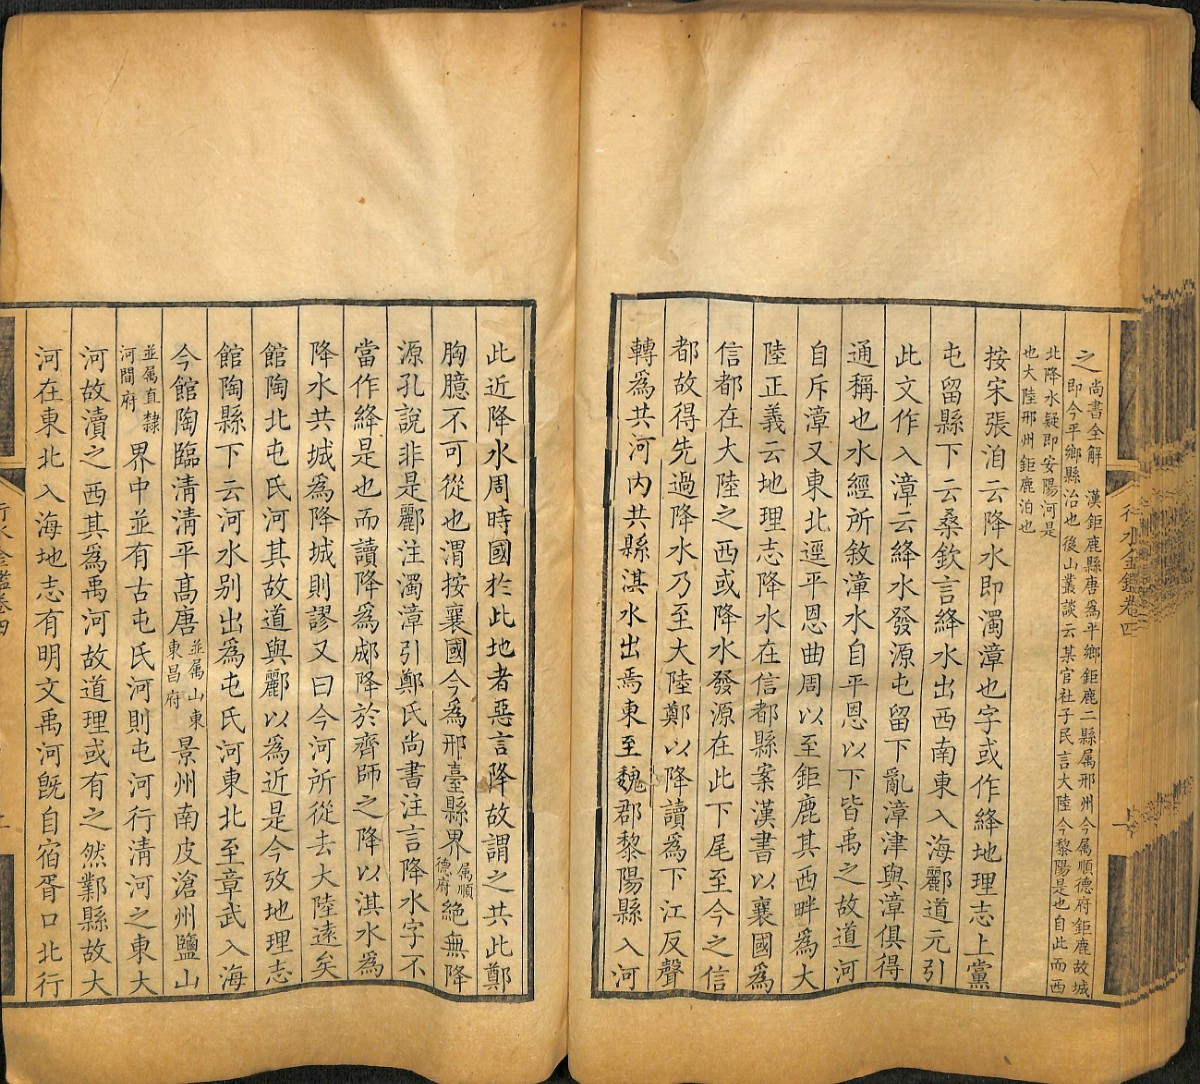 之 尚書全解 漢鉅鹿縣唐爲平鄉鉅鹿二縣属邢州今属順德府鉅鹿故城
即今平鄉縣治也後山叢談云某官社子民言大陸今黎陽是也自此而西
北降水疑即安陽河是
也大陸邢州鉅鹿泊也
按宋張洎云降水即濁漳也字或作絳地理志上黨
屯留縣下云桑欽言絳水出西南東入海酈道元引
此文作入漳云絳水發源屯留下亂漳津與漳俱得
通稱也水經所敘漳水自平恩以下皆禹之故道河
自斥漳又東北逕平恩曲周以至鉅鹿其西畔爲大
陸正義云地理志降水在信都縣案漢書以襄國爲
信都在大陸之西或降水發源在此下尾至今之信
都故得先過降水乃至大陸鄭以降讀爲下江反聲
轉爲共河內共縣淇水出焉東至魏郡黎陽縣入河
行水金鑑卷四
此近降水周時國於此地者惡言降故謂之共此鄭
胸臆不可從也渭按襄國今爲邢臺縣界属順德府絕無降
源孔說非是酈注濁漳引鄭氏尚書注言降水字不
當作絳是也而讀降爲郕降於齊師之降以淇水爲
降水共城爲降城則謬又曰今河所從去大陸遠矣
館陶北屯氏河其故道與酈以爲近是今攷地理志
館陶縣下云河水别出爲屯氏河東北至章武入海
今館陶臨清清平高唐並属山東東昌府景州南皮滄州鹽山
並属直隸河間府界中並有古屯氏河則屯河行清河之東大
河故瀆之西其爲禹河故道理或有之然鄴縣故大
河在東北入海地志有明文禹河旣自宿胥口北行